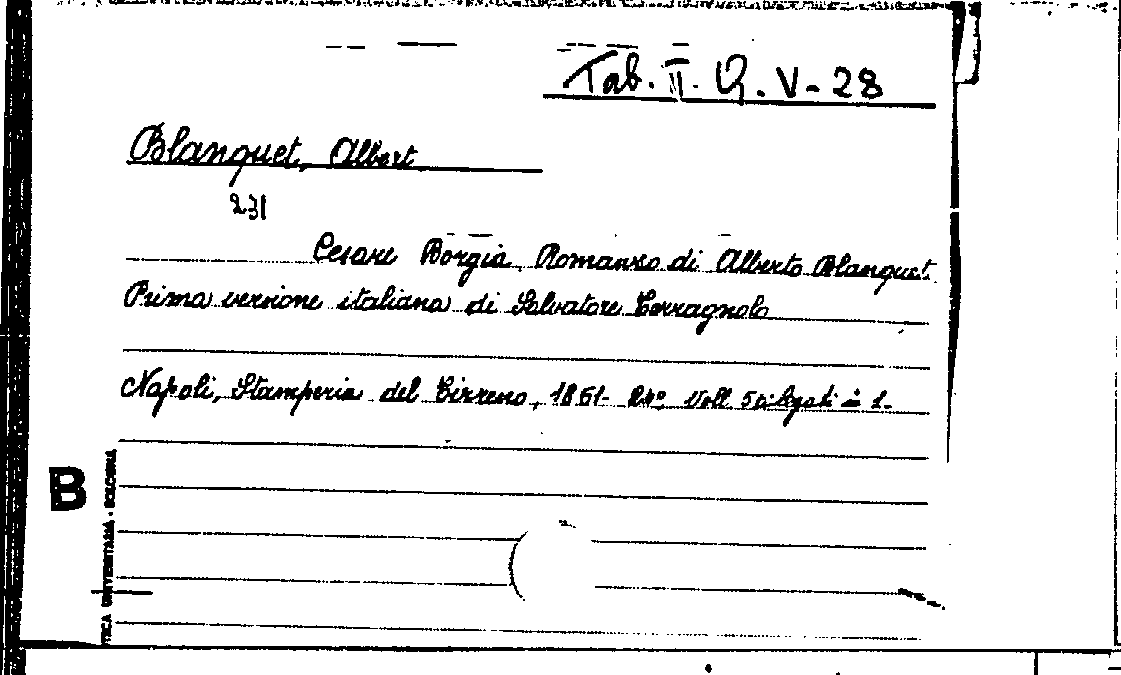 Tab. II. Q. V - 28
Blanquet, Albert
231
Cesare Borgia, Romanzo di Alberto Blanquet.
Prima versione italiana di Salvatore Terragnolo
Napoli, Stamperia del Tirreno, 1861 - 24º, Voll. 5 rilegati in 1.
B
TECA UNIVERSITARIA - BOLOGNA